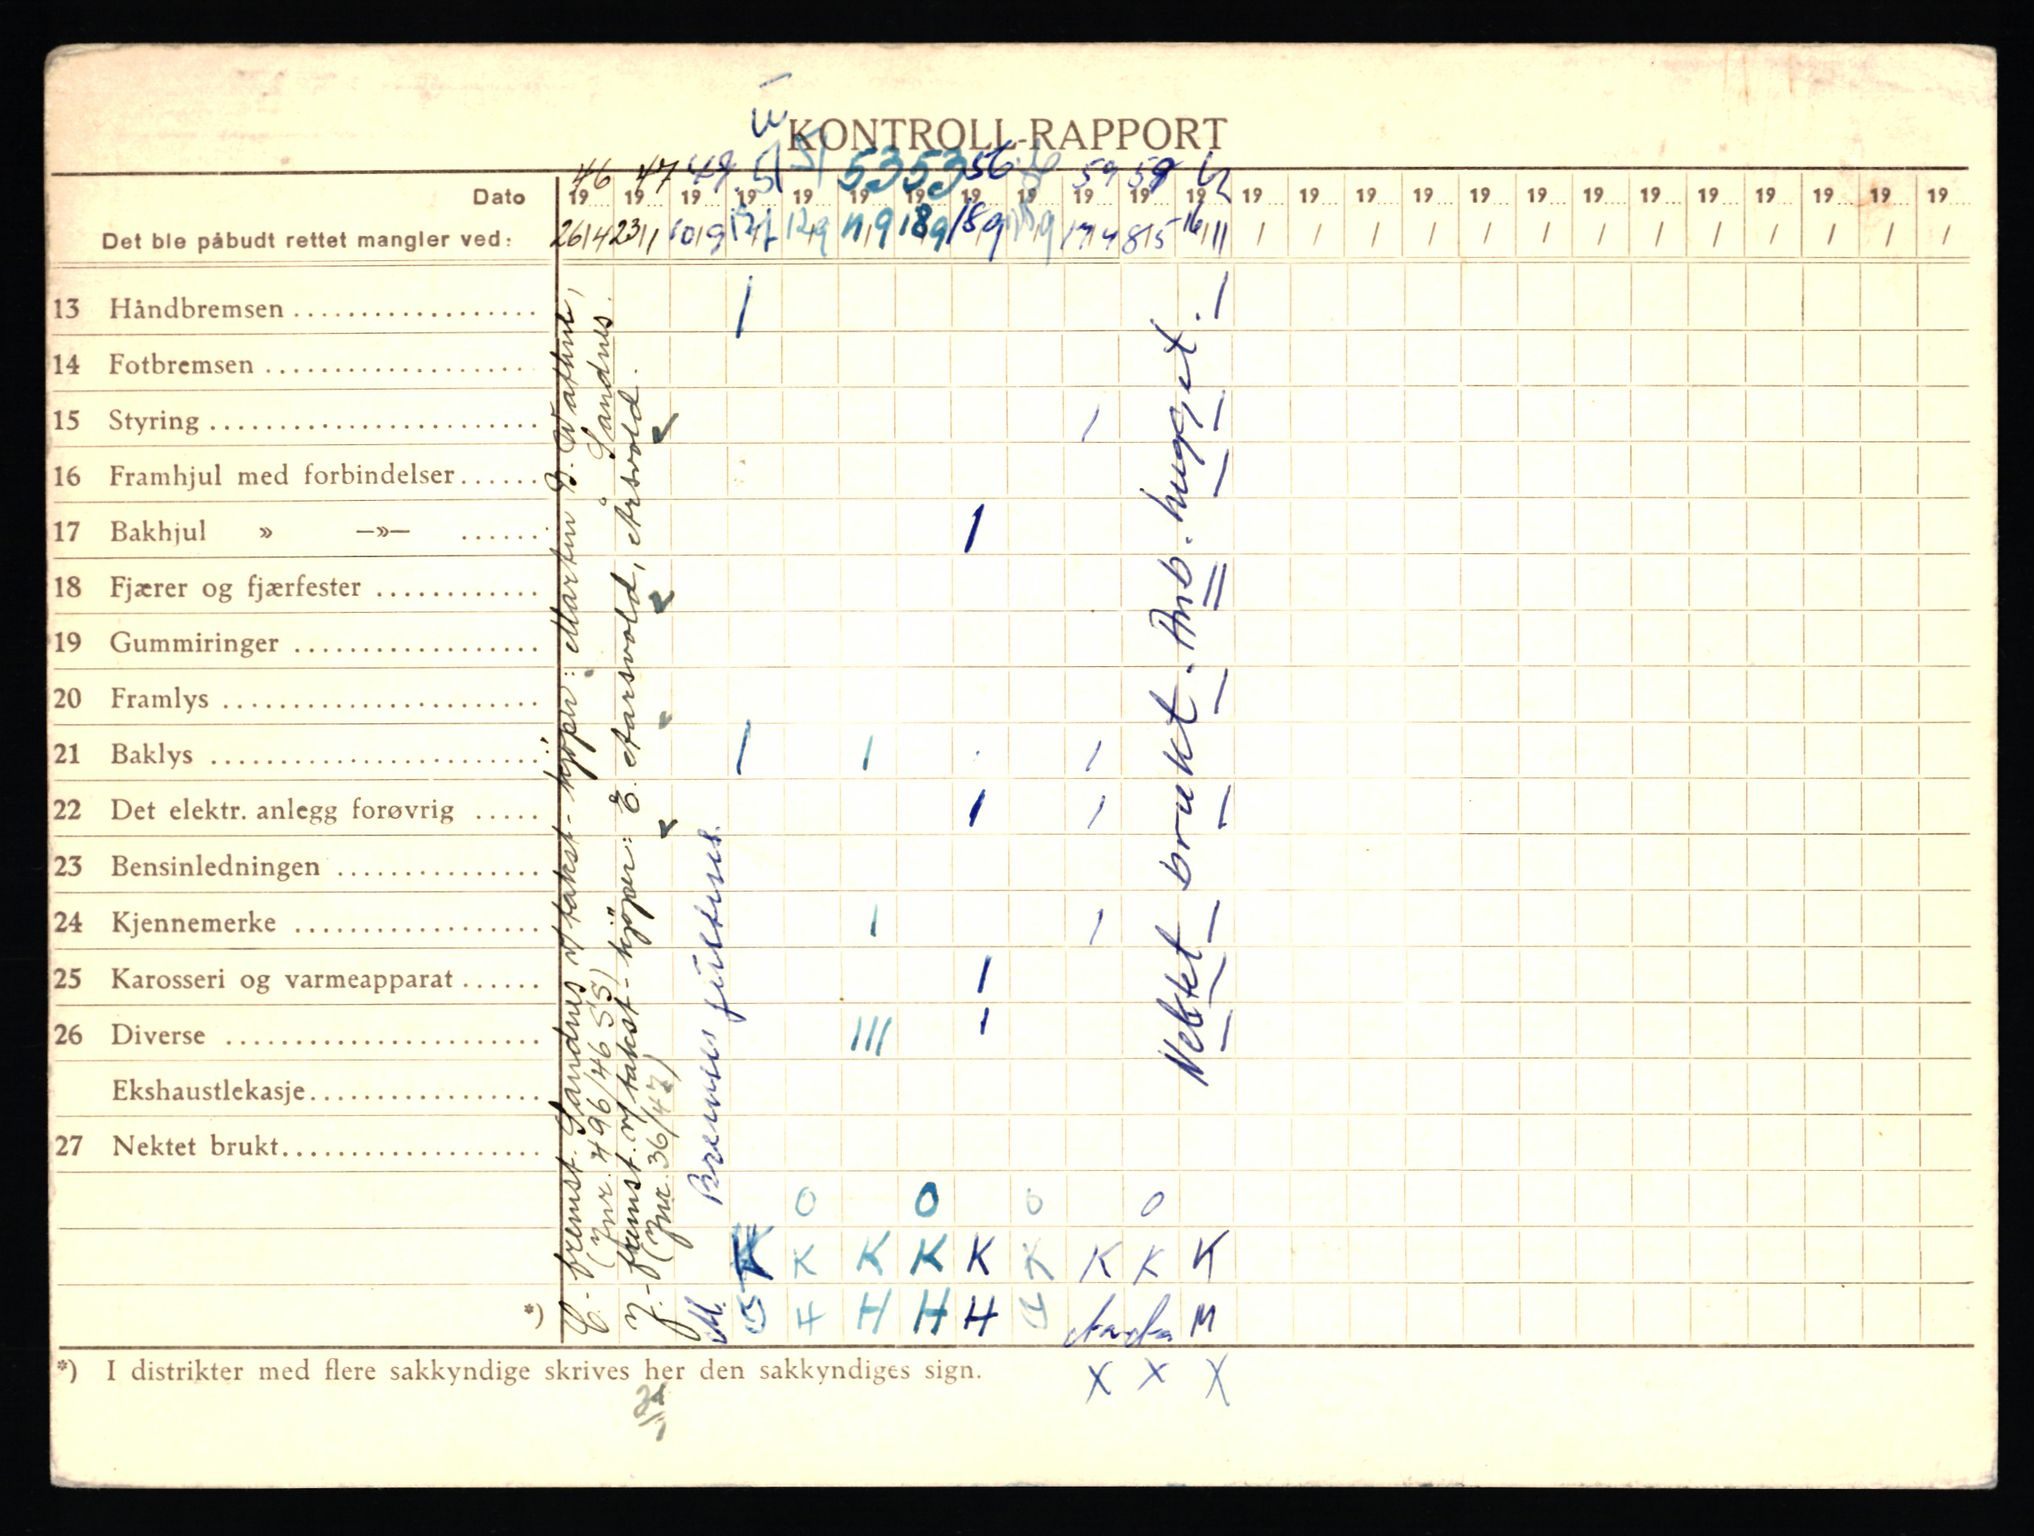 KONTROLL-RAPPORT
46 47 49 51 51 53 53 56 59 59
Dato 19 19 19 19 19 19 19 19 19 19 19 19 19 19 19 19 19 19 19 19 19 19 19 19 19
Det ble påbudt rettet mangler ved: 26/4 23/1 10/9 12/9 11/9 18/9 18/9 17/4 8/5 16/11 / / / / / / / / / / / / /
13 Håndbremsen / /
14 Fotbremsen
15 Styring / /
16 Framhjul med forbindelser /
17 Bakhjul » —»— /
18 Fjærer og fjærfester //
19 Gummiringer
20 Framlys /
21 Baklys / / /
22 Det elektr. anlegg forøvrig / / /
23 Bensinledningen
24 Kjennemerke / / /
25 Karosseri og varmeapparat / /
26 Diverse /// / /
Ekshaustlekasje
27 Nektet brukt
O O O O
K K K K K K K K K
*) M. H H H H M
*) I distrikter med flere sakkyndige skrives her den sakkyndiges sign.
X X X
fremst. Sandnes m/takst - kjøper: Martin B. Wathne, Sandnes.
(Jnr. 496/46 SS)
J. - fremst. m/takst - kjøper: E. Aarsvold, Årsvold.
(Jnr. 36/47)
Bremses justeres.
Nektet brukt. Anb. hugget.